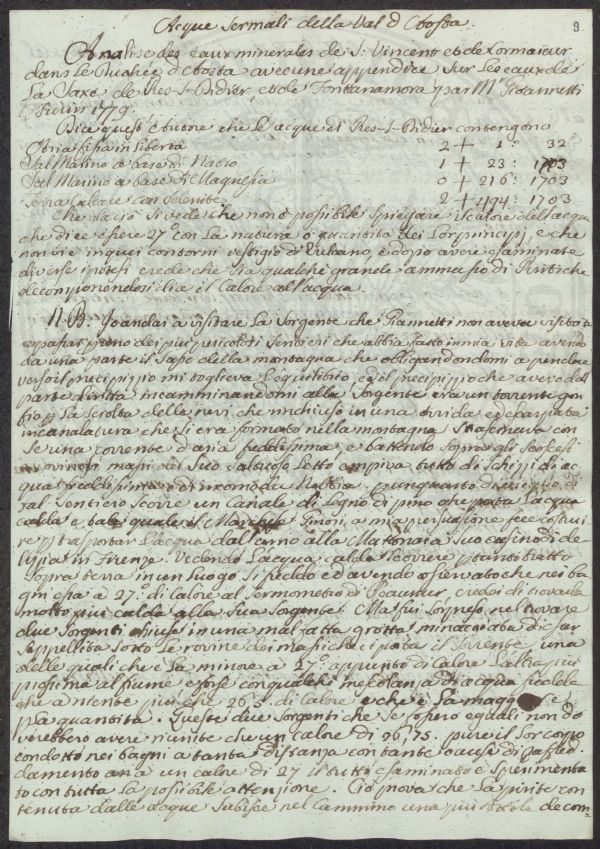 Acque Termali della Val d'Aosta.
9
Analise des eaux minerales de S. Vincent et de Cormaieur
dans le Duché d'Aosta avec une appendice sur les eaux de
La Saxe de Pres-S-Didier et de Fontanamora par M. Gianetti
Turin 1779
Dice quest'Autore che le acque di Pres-S-Didier contengono
Aria fissa in libertà 2 + 1 : 32
Sal Marino a base di Natro 1 + 23 : 1703
Sal Marino a base di Magnesia 0 + 216 : 1703
Terra calcare con Selenite 2 + 494 : 1703
Che da ciò si vede che non è possibile spiegare il calore dell'acqua
che dice essere 27° con la natura o quantità dei lor principj, e che
non vi è in quei contorni vestigio di Vulcano, e dopo avere esaminate
diverse ipotesi crede che sia qualche grande ammasso di Piritiche
decomponendosi dia il Calore all'acqua.
N.B. Io andai a visitare la sorgente che Giannetti non aveva visitata
e passai per uno dei più pericolosi sentieri che abbia fatto in mia vita avendo
da una parte il sasso della montagna che obbligandomi a pendere
verso il precipizzio mi toglieva l'equilibrio, ed il precipizzio che avevo dall
parte diritta incamminandomi alla sorgente era un torrente gon
fio p la sciolta delle nevi che rinchiuso in una orrida ed escarpata
incanalatura che si era formato nella montagna strascinava con
se una corrente d'aria freddissima, e battendo sopra gli scoscesi
massi nel suo sassoso letto empiva tutto di schizzi di ac
qua freddissima e di incomoda Nebbia, quanto di mezzo di
tal sentiero scorre un Canale di Legno di pino che porta l'acqua
calda e tale quale il Marchese Ginori, a mia persuasione fece costrui
re p trasportar l'acqua dall'arno alla Mattonaia suo casino di de
lizia in Firenze. Vedendo l'acqua calda scorrere p tanto tratto
sopra terra in un luogo si freddo ed avendo osservato che nei ba
gni essa à 27. di calore al Termometro di Reaumur, credei di trovarla
molto più calda alla sua sorgente. Ma fui sorpreso nel trovare
due sorgenti chiuse in una mal fatta grotta minacciata di esser
seppellita sotto le rovine dei massi che porta il torrente, una
delle quali che è la minore à 27° appunto di calore l'altra più
prossima al fiume e forse con qualche mescolanza di acqua fredda
che à niente più che 26.5 di calore e che è la maggiore
p la quantità. Queste due sorgenti che se fossero eguali non do
verebbero avere riunite che un calore di 26,75. pure il lor corpo
condotto nei bagni a tanta distanza con tante cause di raffred
damento anà un calore di 27 il tutto esaminato e sperimenta
to con tutta la possibile attenzione. Ciò prova che la pirite con
tenuta dalle acque subisce nel Cammino una più totale decom-